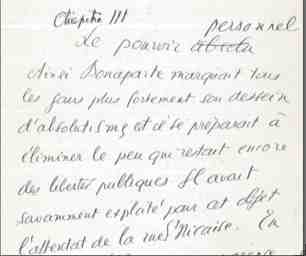 Chapitre III
personnel
Le pouvoir absolu
Ainsi Bonaparte marquait tous
les jours plus fortement son dessein
d'absolutisme et se préparait à
éliminer le peu qui restait encore
des libertés publiques Il avait
savamment exploité pour cet objet
l'attentat de la rue St Nicaise. En